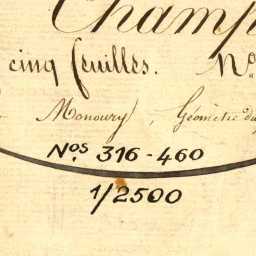 Champ
cinq feuilles. No
Monoury, Géomètre du
Nos 316-460
1/2500